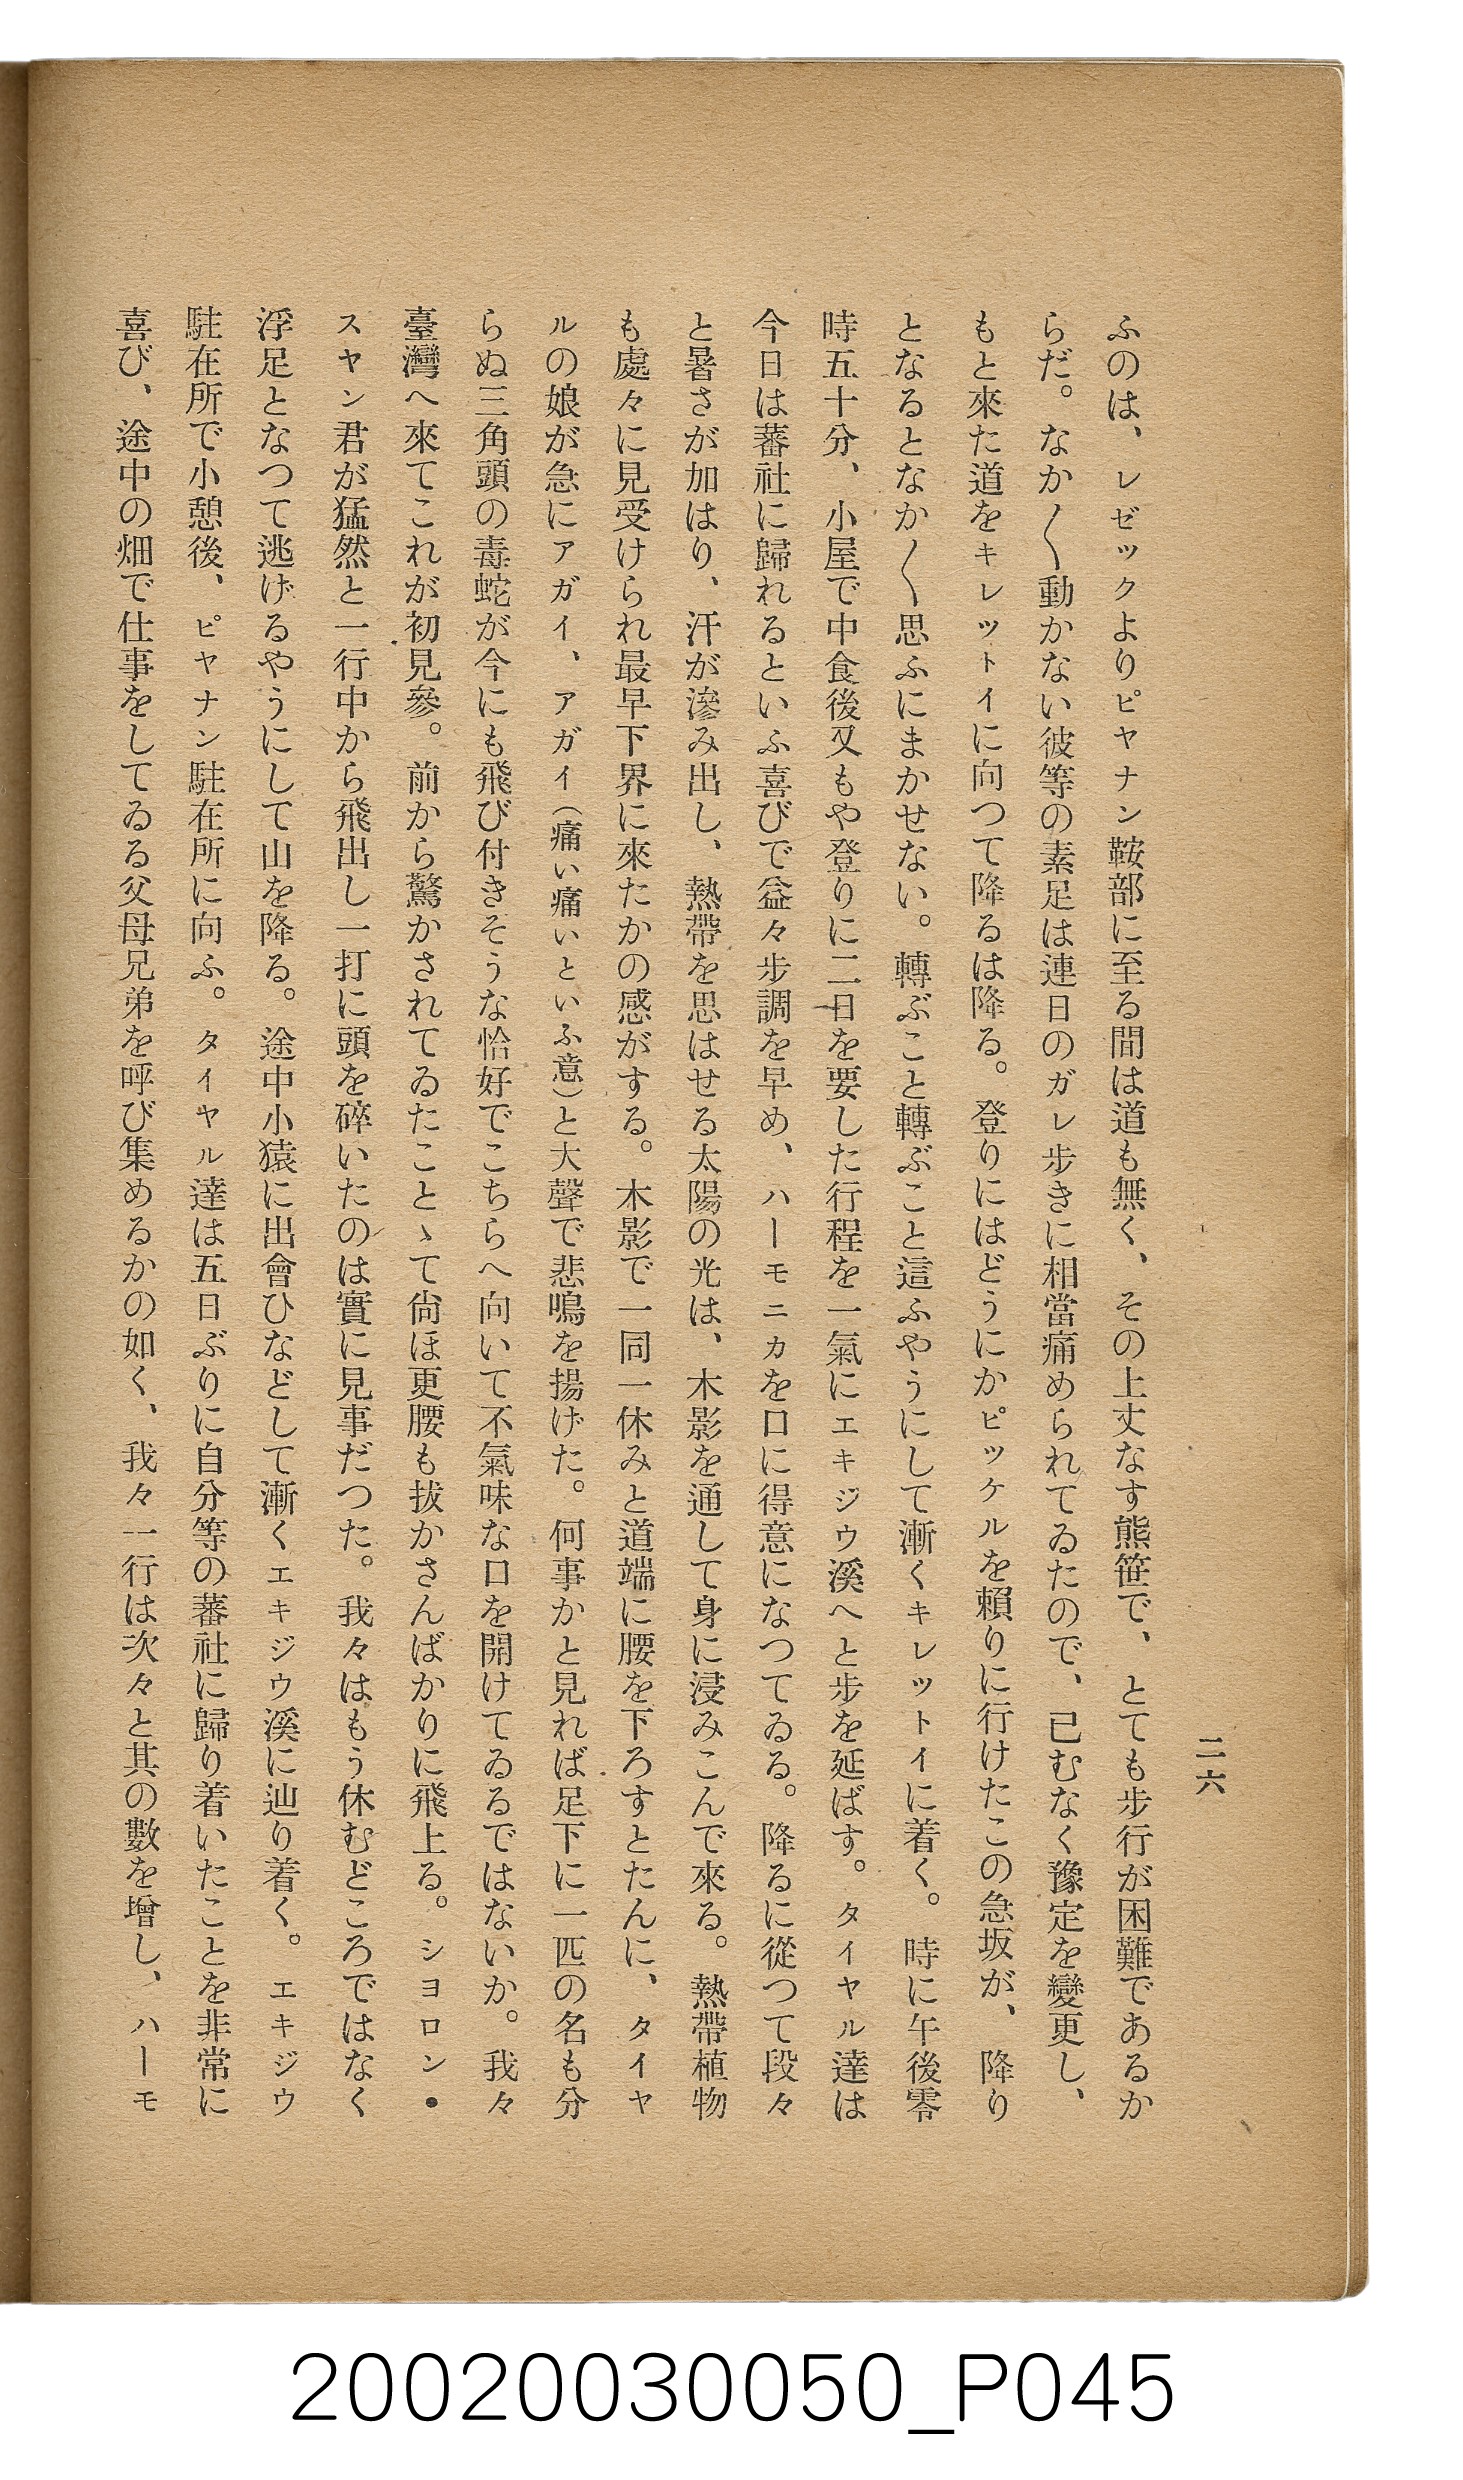 二六
ふのは、レゼックよりピヤナン鞍部に至る間は道も無く、その上丈なす熊笹で、とても歩行が困難であるか
らだ。なか〳〵動かない彼等の素足は連日のガレ歩きに相當痛められてゐたので、已むなく豫定を變更し、
もと來た道をキレットイに向つて降るは降る。登りにはどうにかピッケルを賴りに行けたこの急坂が、降り
となるとなか〳〵思ふにまかせない。轉ぶこと轉ぶこと這ふやうにして漸くキレットイに着く。時に午後零
時五十分、小屋で中食後又もや登りに二日を要した行程を一氣にエキジウ溪へと歩を延ばす。タイヤル達は
今日は蕃社に歸れるといふ喜びで益々歩調を早め、ハーモニカを口に得意になつてゐる。降るに從つて段々
と暑さが加はり、汗が滲み出し、熱帶を思はせる太陽の光は、木影を通して身に浸みこんで來る。熱帶植物
も處々に見受けられ最早下界に來たかの感がする。木影で一同一休みと道端に腰を下ろすとたんに、タイヤ
ルの娘が急にアガイ、アガイ（痛い痛いといふ意）と大聲で悲鳴を揚げた。何事かと見れば足下に一匹の名も分
らぬ三角頭の毒蛇が今にも飛び付きそうな恰好でこちらへ向いて不氣味な口を開けてゐるではないか。我々
臺灣へ來てこれが初見參。前から驚かされてゐたことゝて尙ほ更腰も拔かさんばかりに飛上る。シヨロン・
スヤン君が猛然と一行中から飛出し一打に頭を碎いたのは實に見事だつた。我々はもう休むどころではなく
浮足となつて逃げるやうにして山を降る。途中小猿に出會ひなどして漸くエキジウ溪に辿り着く。エキジウ
駐在所で小憩後、ピヤナン駐在所に向ふ。タイヤル達は五日ぶりに自分等の蕃社に歸り着いたことを非常に
喜び、途中の畑で仕事をしてゐる父母兄弟を呼び集めるかの如く、我々一行は次々と其の數を增し、ハーモ
20020030050_P045